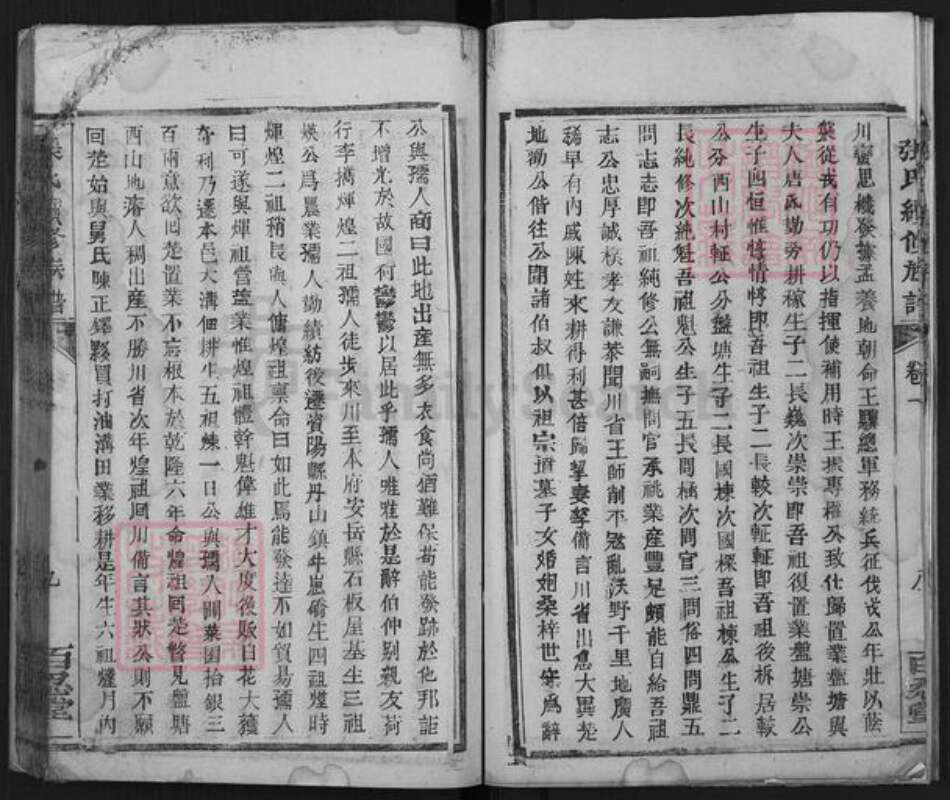 張氏續修族譜 卷一 八 百忍堂
川蠻思機發據孟養地朝命王驥總軍務統兵征伐茂公年壯以蔭
襲從戎有功仍以指揮使補用時王振專權及致仕歸置業盤塘與
夫人唐氏勤勞耕稼生子二長巍次崇崇即吾祖復置業盤塘崇公
生子四恒惟悖情悖即吾祖生子二長較次軭軭即吾祖後柝居較
公分西山村軭公分盤塘生子二長國棟次國樑吾祖棟公生子二
長純修次純魁吾祖魁公生子五長問極次問官三問俗四問鼎五
問志志即吾祖純修公無嗣撫問官承祧業產豐足頗能自給吾祖
志公忠厚誠樸孝友謙恭聞川省王師削平寇亂沃野千里地廣人
稀早有內戚陳姓來耕得利甚倍歸挈妻孥備言川省出息大異楚
地勸公偕往公聞諸伯叔俱以祖宗道墓子女婚姻桑梓世守為辭
公與孺人商曰此地出產無多衣食尚猶難保苟能發跡於他邦詎
不增光於故國何鬱鬱以居此乎孺人唯唯於是辭伯仲別親友荷
行李攜煇煌二祖孺人徒步來川至本府安岳縣石板屋基生三祖
煐公為農業孺人勤績紡後遷資陽縣丹山鎮牛崽磡生四祖㷸時
煇煌二祖稍長與人傭煌祖稟命曰如此焉能發達不如貿易孺人
曰可遂與煇祖營鹽業惟煌祖體幹魁偉雄才大度後販白花大獲
奇利乃遷本邑大溝佃耕生五祖煉一日公與孺人闢菜園拾銀三
百兩意欲囘楚置業不忘根本於乾隆六年命煌祖囘楚瞥見盤塘
西山地窄人稠出產不勝川省次年煌祖囘川備言其狀公則不願
回楚始與舅氏陳正鐸夥買打油溝田業移耕是年生六祖㸌月內
九 百忍堂